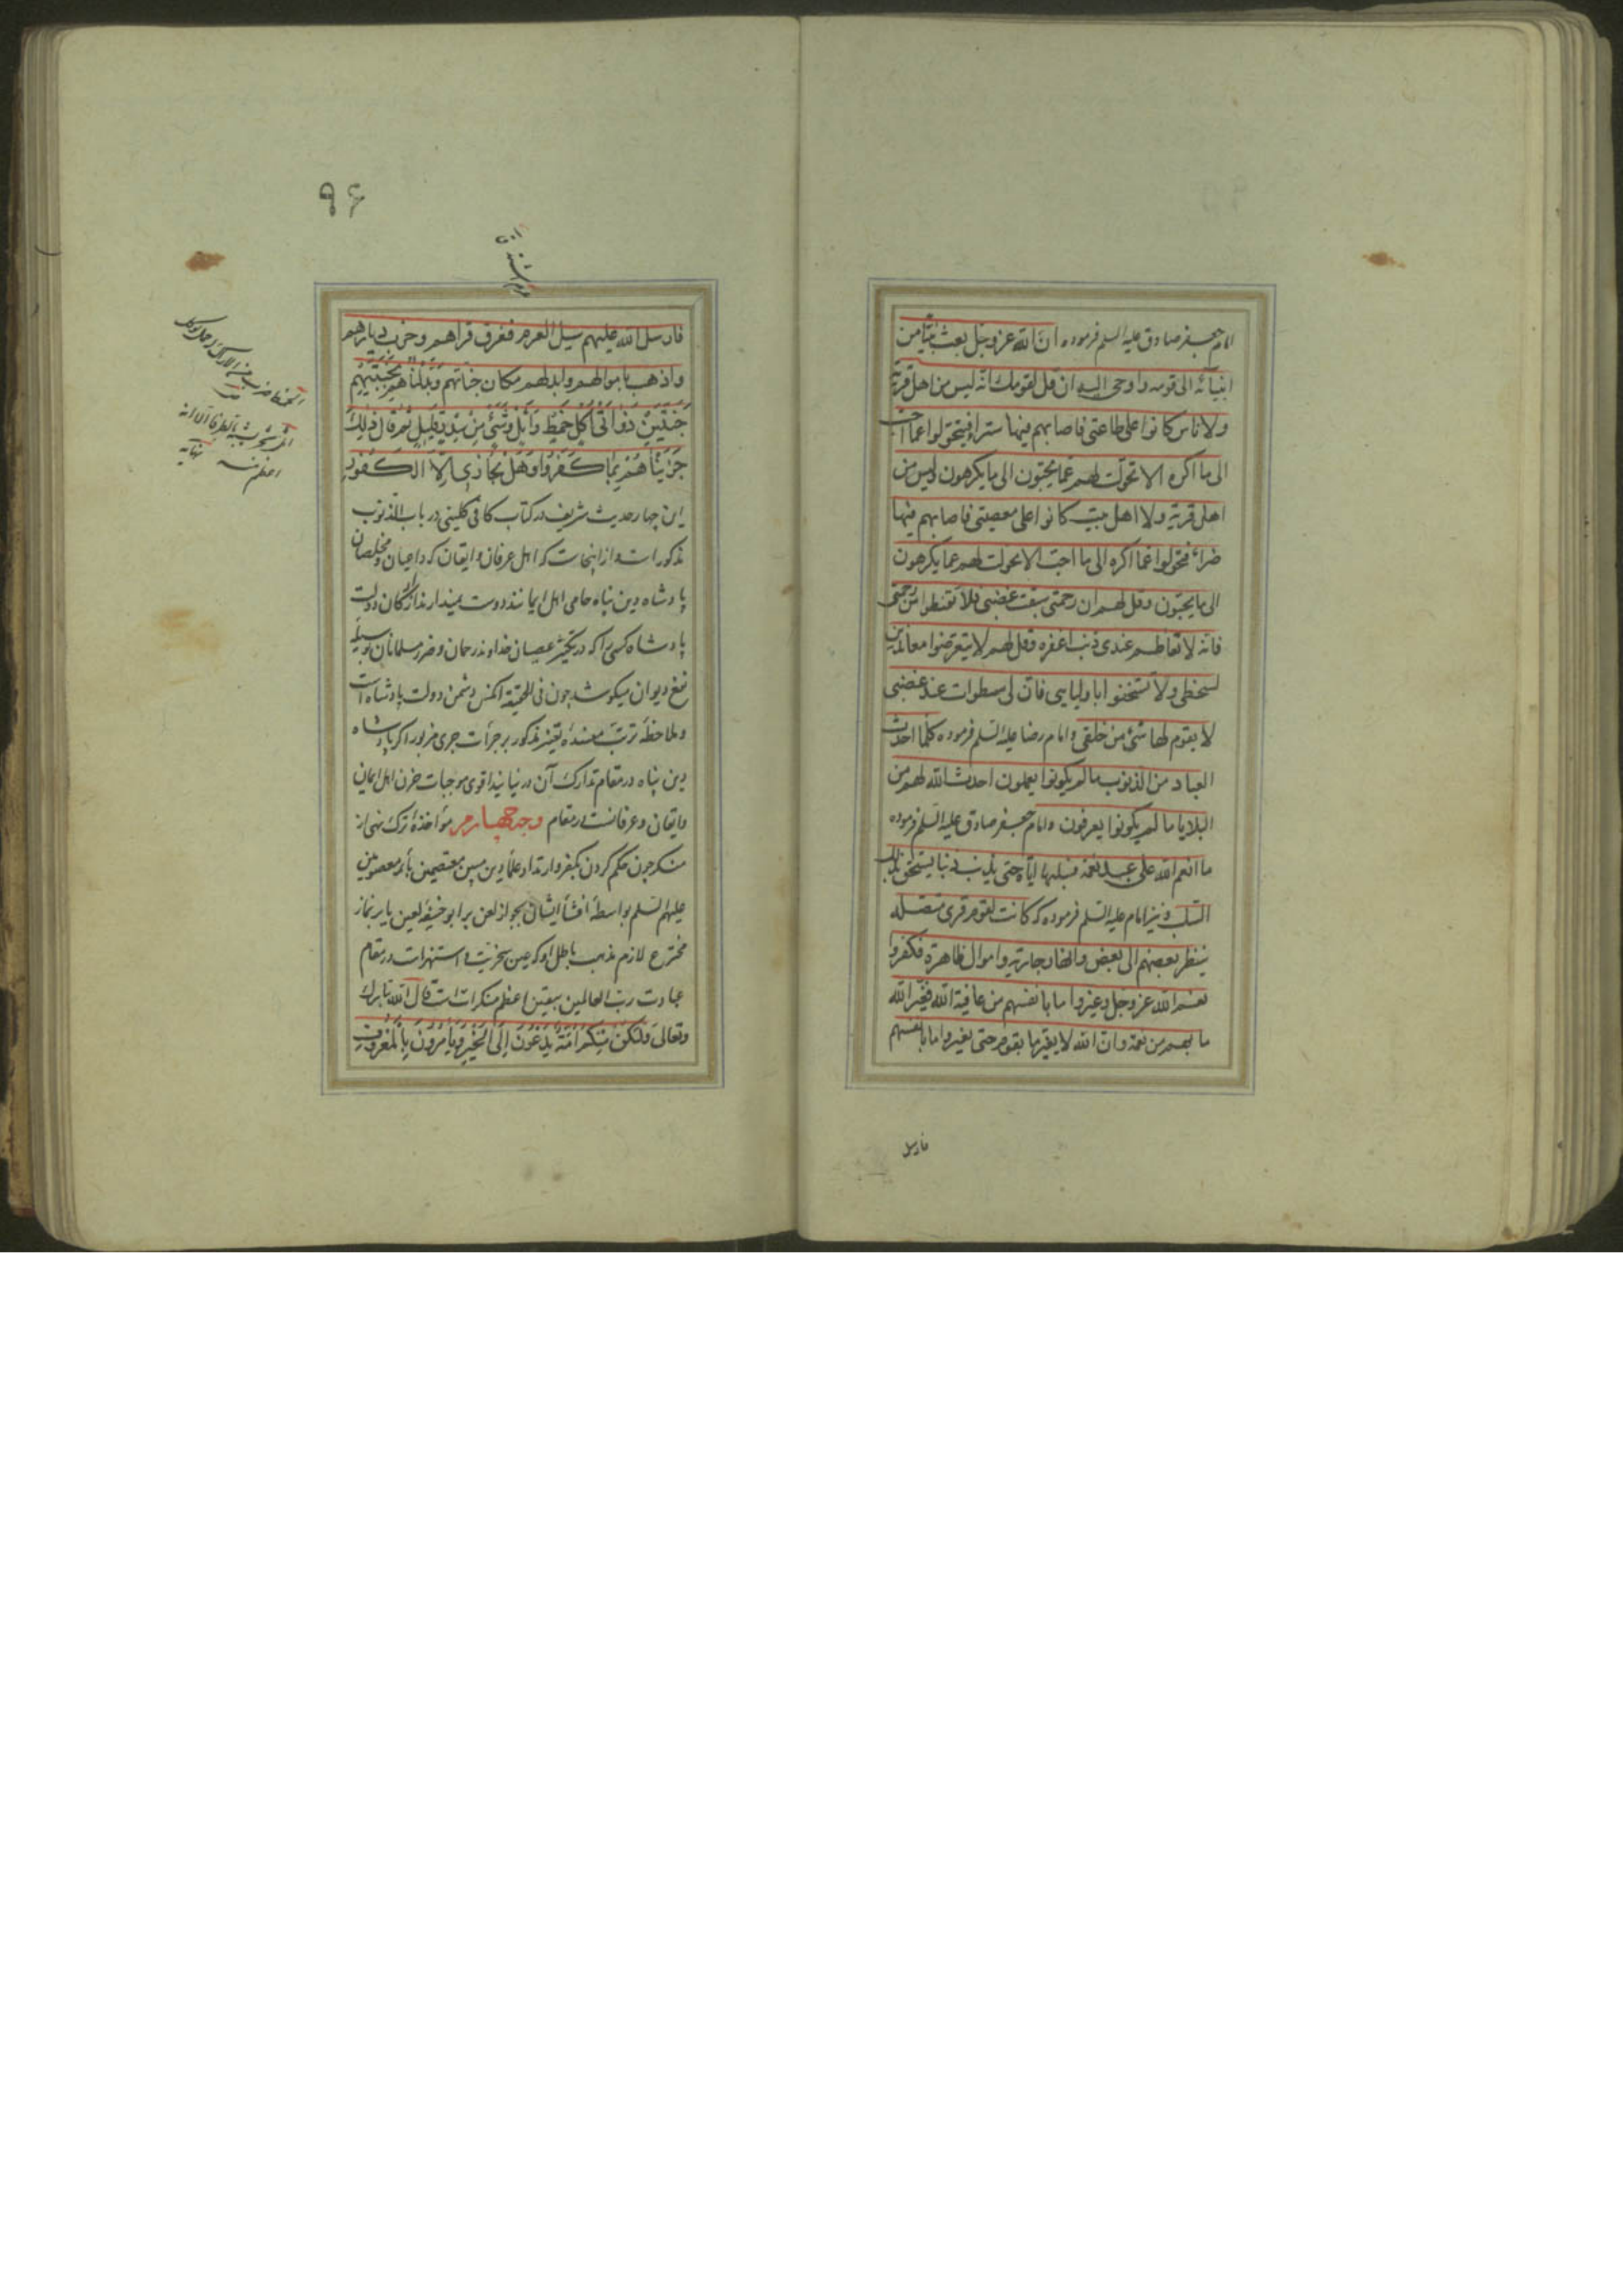 امام جعفر صادق علیه السلم فرموده ان الله عز و جل بعث نبیّا من
انبیائه الی قومه و اوحی الیه ان قل لقومك انه لیس من اهل قریة
ولا ناس کانوا علی طاعتی فاصابهم فیها سراء فتحولوا عما احب
الی ما اکره الا تحولت لهم عما یحبون الی ما یکرهون ولیس من
اهل قریة ولا اهل بیت کانوا علی معصیتی فاصابهم فیها
ضراء فتحولوا عما اکره الی ما احب الا تحولت لهم عما یکرهون
الی ما یحبون وقل لهم ان رحمتی سبقت غضبی فلا تقنطوا من رحمتی
فانه لا تعاظم عندی ذنب اغفره وقل لهم لا یتعرضوا معاندین
لسخطی ولا یستخفوا باولیایی فان لی سطوات عند غضبی
لا یقوم لها شیء من خلقی و امام رضا علیه السلم فرموده کلما احدث
العباد من الذنوب ما لم یکونوا یعملون احدث الله لهم من
البلایا ما لم یکونوا یعرفون و امام جعفر صادق علیه السلم فرموده
ما انعم الله علی عبد نعمة فسلبها ایاه حتی یذنب ذنبا یستحق بذلك
السلب و نیز امام علیه السلم فرموده که کانت لقوم قری متصله
ینظر بعضهم الی بعض و انهار جاریه و اموال ظاهرة فکفروا
نعم الله عز و جل و غیروا ما بانفسهم من عافیة الله فغیر الله
ما بهم من نعمة و ان الله لا یغیر ما بقوم حتی یغیروا ما بانفسهم
فارسل
۹۶
فارسل الله علیهم سیل العرم فغرق قراهم و خرب دیارهم
و اذهب باموالهم و ابدلهم مکان جناتهم وَبَدَّلْنَاهُمْ بِجَنَّتَیْهِمْ
جَنَّتَیْنِ ذَوَاتَیْ اُکُلٍ خَمْطٍ وَاَثْلٍ وَشَیْءٍ مِنْ سِدْرٍ قَلِیلٍ ثم قال ذٰلِكَ
جَزَیْنَاهُمْ بِمَا کَفَرُوا وَهَلْ نُجَازِی اِلَّا الْکَفُورَ
این چهار حدیث شریف در کتاب کافی کلینی در باب الذنوب
مذکور است و از اینجاست که اهل عرفان و ایقان که داعیان و مخلصان
پادشاه دین پناه حامی اهل ایمانند دوست نمیدارند از ارکان دولت
پادشاه کسی را که در تکثیر عصیان خداوند رحمان و ضرر مسلمانان بوسیله
نفع دیوان میکوشد چون فی الحقیقة آنکس دشمن دولت پادشاه است
و ملاحظه ترتب مفسده تغیر مذکور بر جرأت جری مزبور اکر پادشاه
دین پناه در مقام تدارك آن در نیایند اقوی موجبات حزن اهل ایمان
و ایقان و عرفانست در مقام وجه چهارم مؤاخذه ترك نهی از
منکر چون حکم کردن بکفر و ارتداد علماء دین مبین معتصمین بائمه معصومین
علیهم السلم بواسطه افشاء ایشان بجواز لعن بر ابو حنیفه لعین یا بر نماز
مخترع لازم مذهب باطل او که عین سخریت و استهزاست در مقام
عبادت رب العالمین بیقین اعظم منکراتست قال الله تبارك
وتعالی وَلْتَکُنْ مِنْکُمْ اُمَّةٌ یَدْعُونَ اِلَی الْخَیْرِ وَیَأْمُرُونَ بِالْمَعْرُوفِ
الخمط ضرب من الاراك له حمل یؤکل
الاثل شجر شبیه بالطرفا الا انه
اعظم منه نهایه